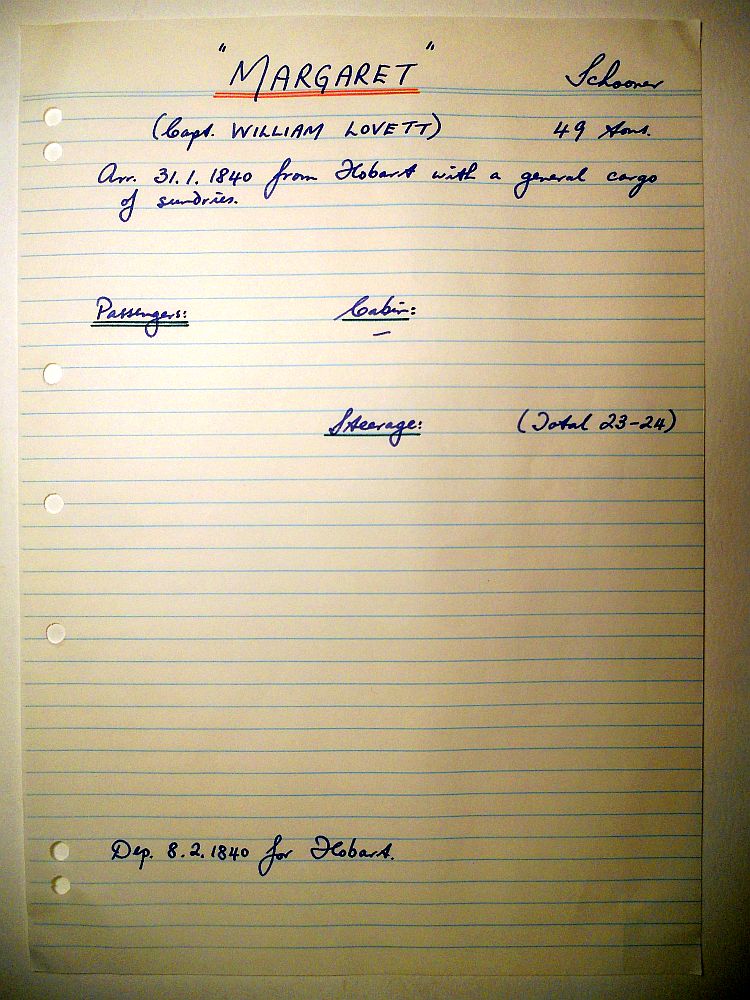 "MARGARET" Schooner
(Capt. WILLIAM LOVETT) 49 tons.
Arr. 31.1.1840 from Hobart with a general cargo
of sundries.
Passengers: Cabin:
—
Steerage: (Total 23-24)
Dep. 8.2.1840 for Hobart.